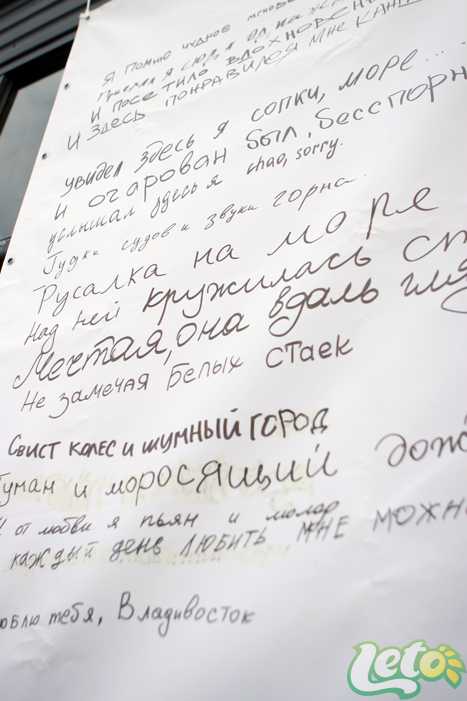 Я помню чудное мгнове
Приехал я сюда,
и посетило вдохнове
и здесь понравился мне
увидел здесь я сопки, море...
и очарован был, бесспорн
услышал здесь я chao, sorry.
Гудки судов и звуки горна.
Русалка на море
Над ней кружилась ст
Мечтая, она вдаль гля
Не замечая белых стаек
Свист колес и шумный город
Туман и моросящий дож
от любви я пьян и молод
каждый день любить мне можн
юблю тебя, Владивосток
Leto